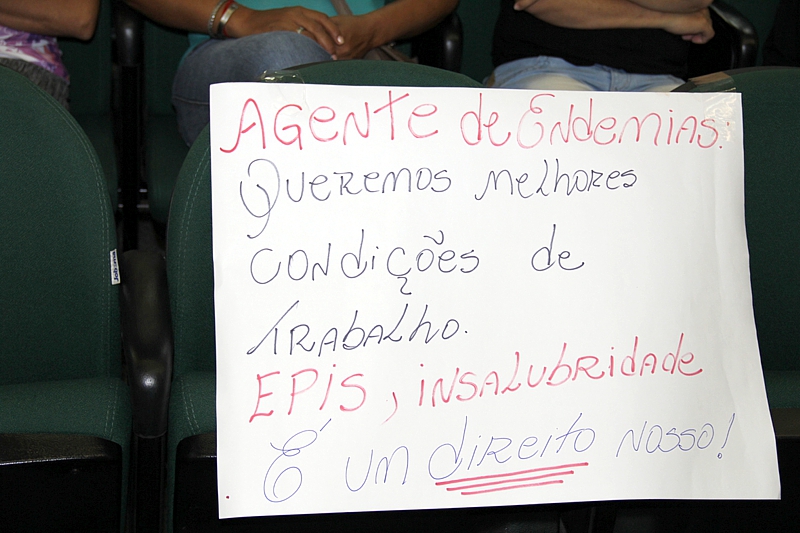 AGENTE de ENdemiAS:
QUEREMOS melhORES
CONdições de
TRABALHO.
EPIS, iNSALUBRidAde
É UM direito NOSSO!